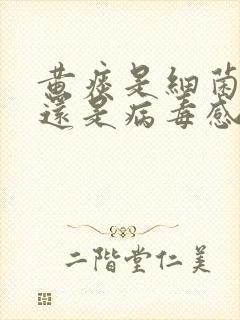 黄痰是細菌
還是病毒感
二階堂仁美